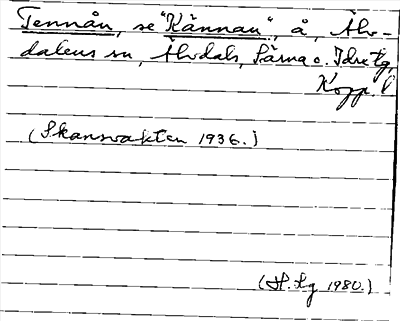 Tennån, se "Kännan", å, Älv-
dalens sn, Älvdals, Särna o. Idre tg,
Kopp. l
(Skansvakten 1936.)
(H. Lg 1980.)